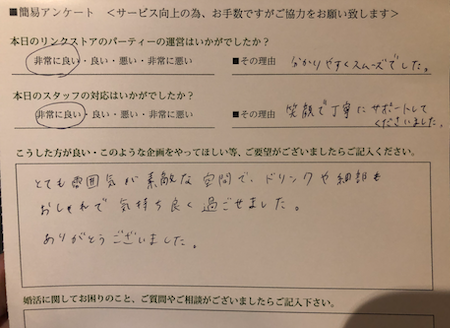 ■簡易アンケート ＜サービス向上の為、お手数ですがご協力をお願い致します＞
本日のリンクストアのパーティーの運営はいかがでしたか？
非常に良い・良い・悪い・非常に悪い ■その理由 分かりやすくスムーズでした。
本日のスタッフの対応はいかがでしたか？
非常に良い・良い・悪い・非常に悪い ■その理由 笑顔で丁寧にサポートして
くださいました。
こうした方が良い・このような企画をやってほしい等、ご要望がございましたらご記入ください。
とても雰囲気が素敵な空間で、ドリンクや細部も
おしゃれで気持ち良く過ごせました。
ありがとうございました。
婚活に関してお困りのこと、ご質問やご相談がございましたらご記入下さい。